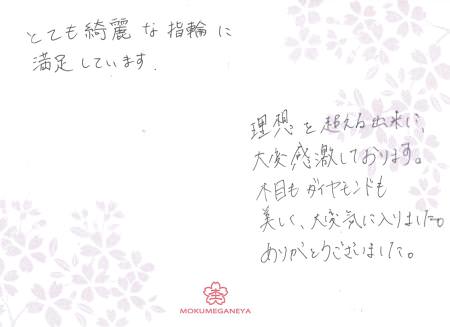 とても綺麗な指輪に
満足しています.
理想を超える出来に、
大変感激しております。
木目もダイヤモンドも
美しく、大変気に入りました。
ありがとうございました。
MOKUMEGANEYA